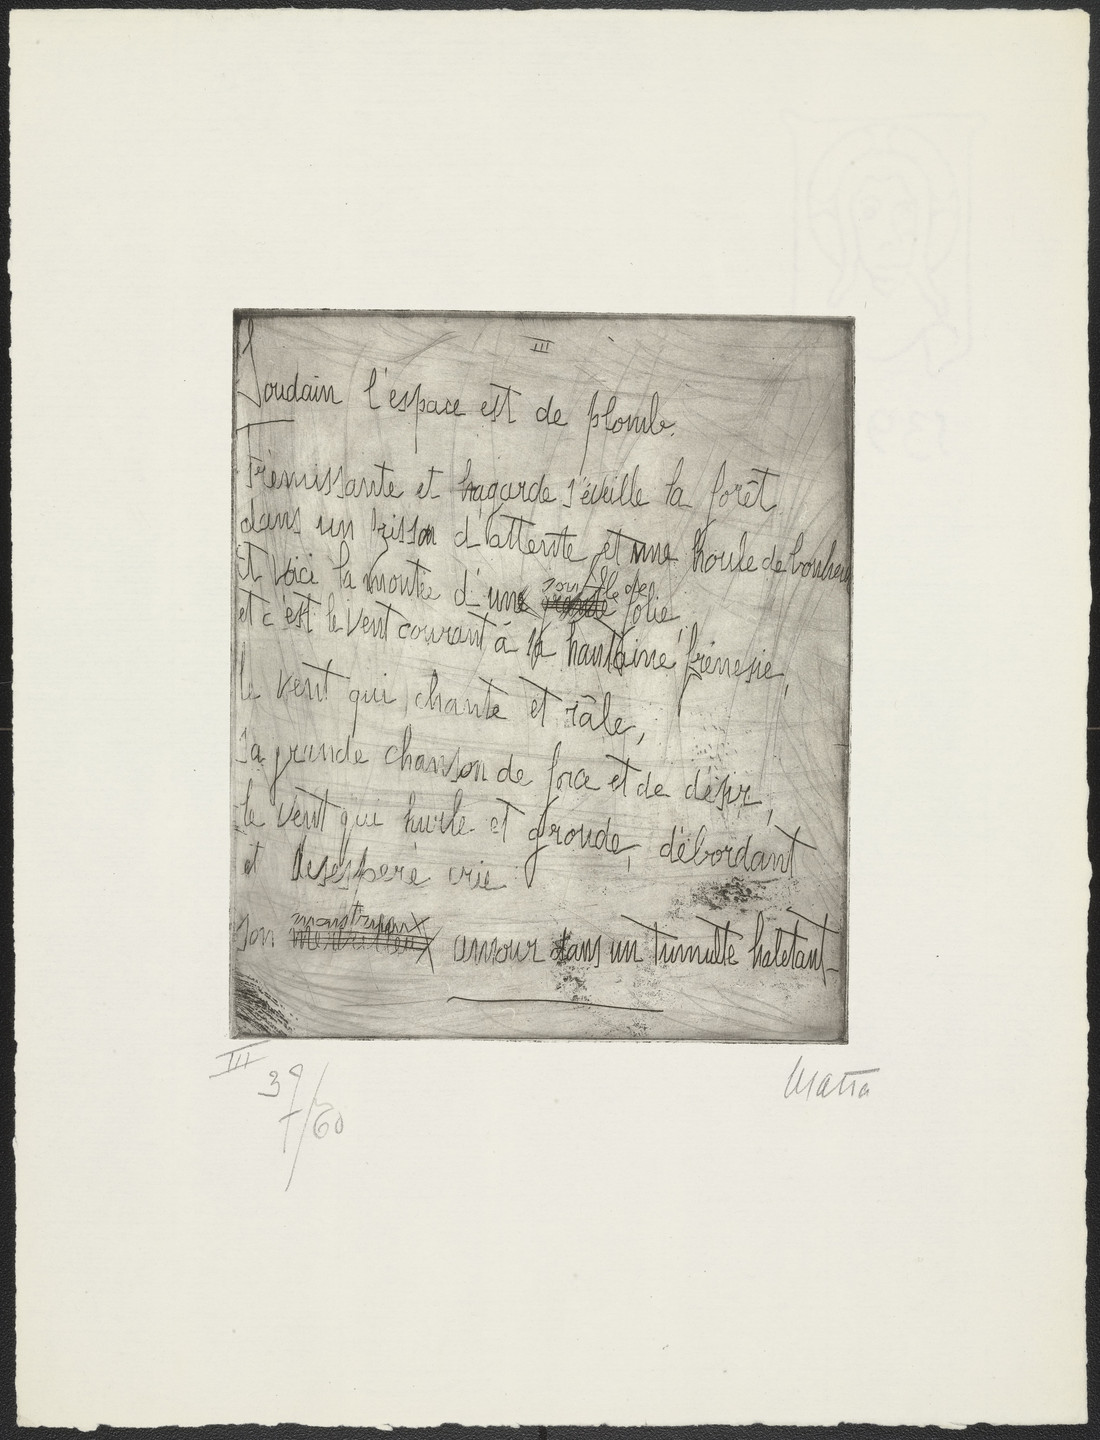 III
Soudain l'espace est de plomb.
Frémissante et hagarde s'éveille la forêt
dans un frisson d'attente et une houle de bonheur
Et voici la montée d'une souffle de folie,
et c'est le vent courant à sa hautaine frénésie,
le vent qui chante et râle,
sa grande chanson de force et de désir,
le vent qui hurle et gronde, débordant
et désespéré crie
monstrueux
son merveilleux amour dans un tumulte haletant
III
39/60 Matta